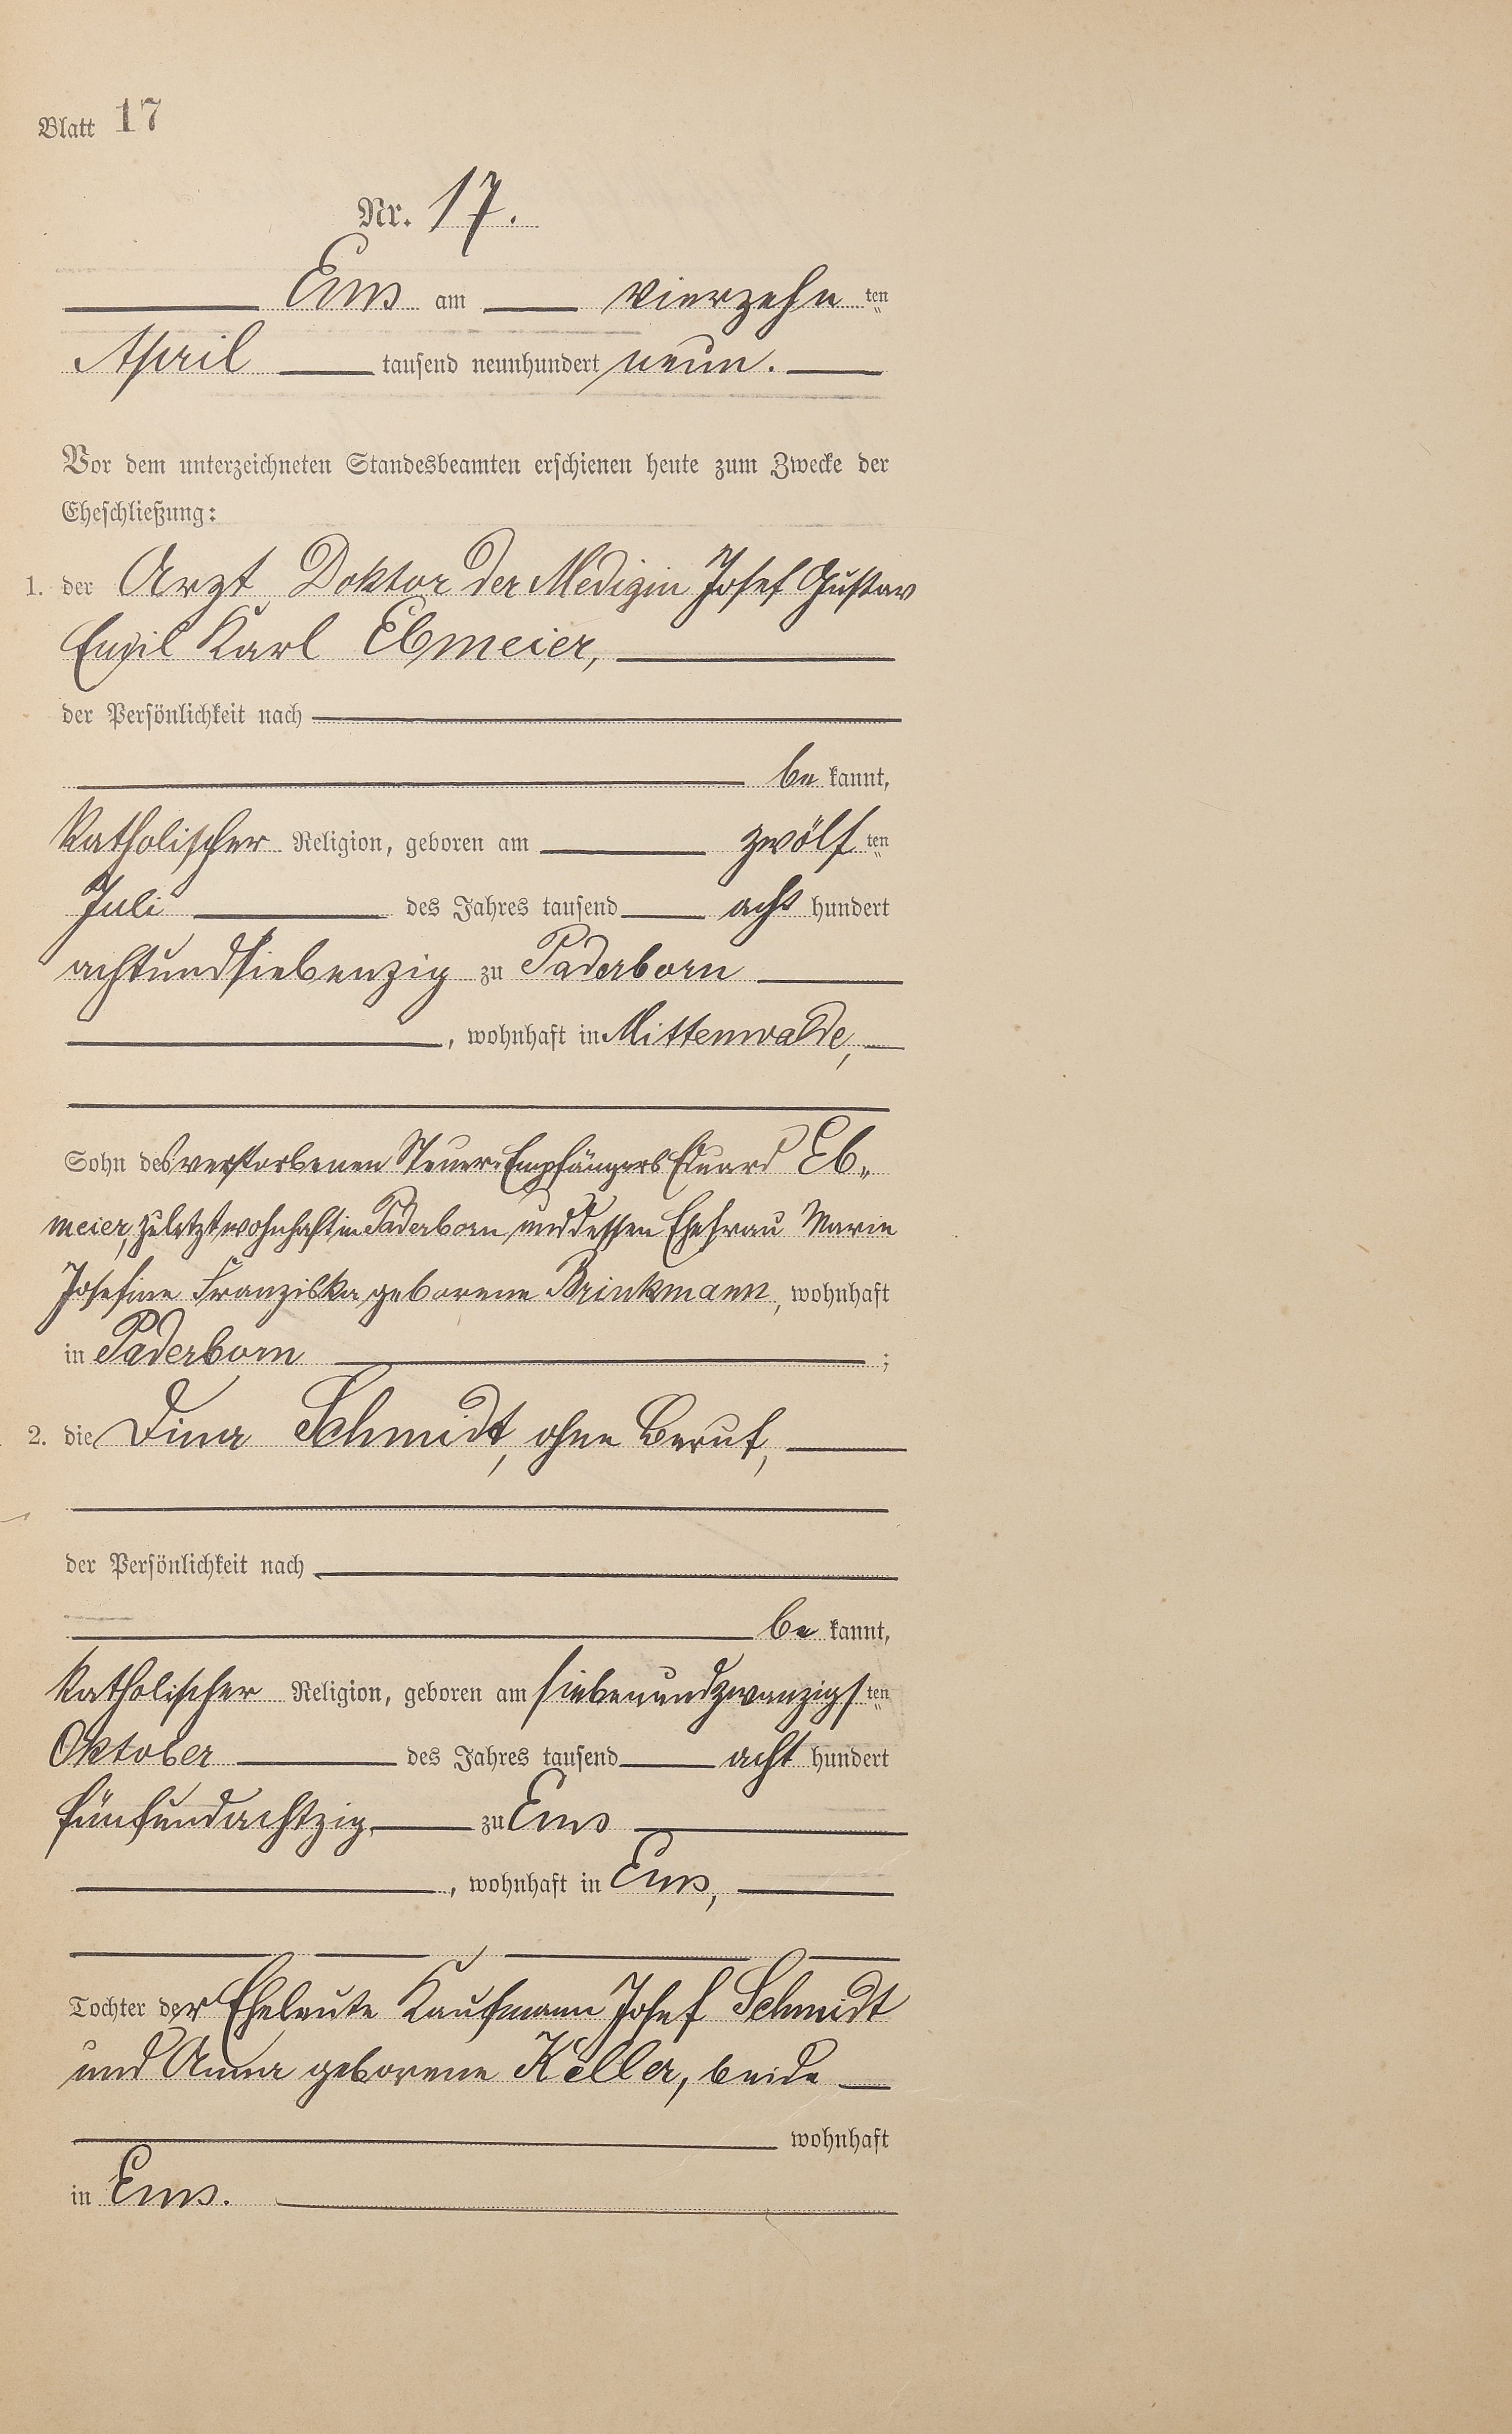 Blatt 17
Nr. 17.
Ems am vierzehn ten
April tausend neunhundert neun.
Vor dem unterzeichneten Standesbeamten erschienen heute zum Zwecke der
Eheschließung:
1. der Arzt Doktor der Medizin Josef Gustav
Emil Karl Ebmeier,
der Persönlichkeit nach
be kannt,
katholischer Religion, geboren am zwölf ten
Juli des Jahres tausend acht hundert
achtundsiebenzig zu Paderborn
, wohnhaft in Mittenwalde,
Sohn des verstorbenen Steuer-Empfängers Eduard Eb-
meier, zuletzt wohnhaft in Paderborn und dessen Ehefrau Marie
Josefine Franziska geborene Brinkmann, wohnhaft
in Paderborn ;
2. die Dina Schmidt, ohne Beruf,
der Persönlichkeit nach
be kannt,
katholischer Religion, geboren am siebenundzwanzigs ten
Oktober des Jahres tausend acht hundert
fünfundachtzig zu Ems
, wohnhaft in Ems,
Tochter der Eheleute Kaufmann Josef Schmidt
und Anna geborene Keller, beide
wohnhaft
in Ems.